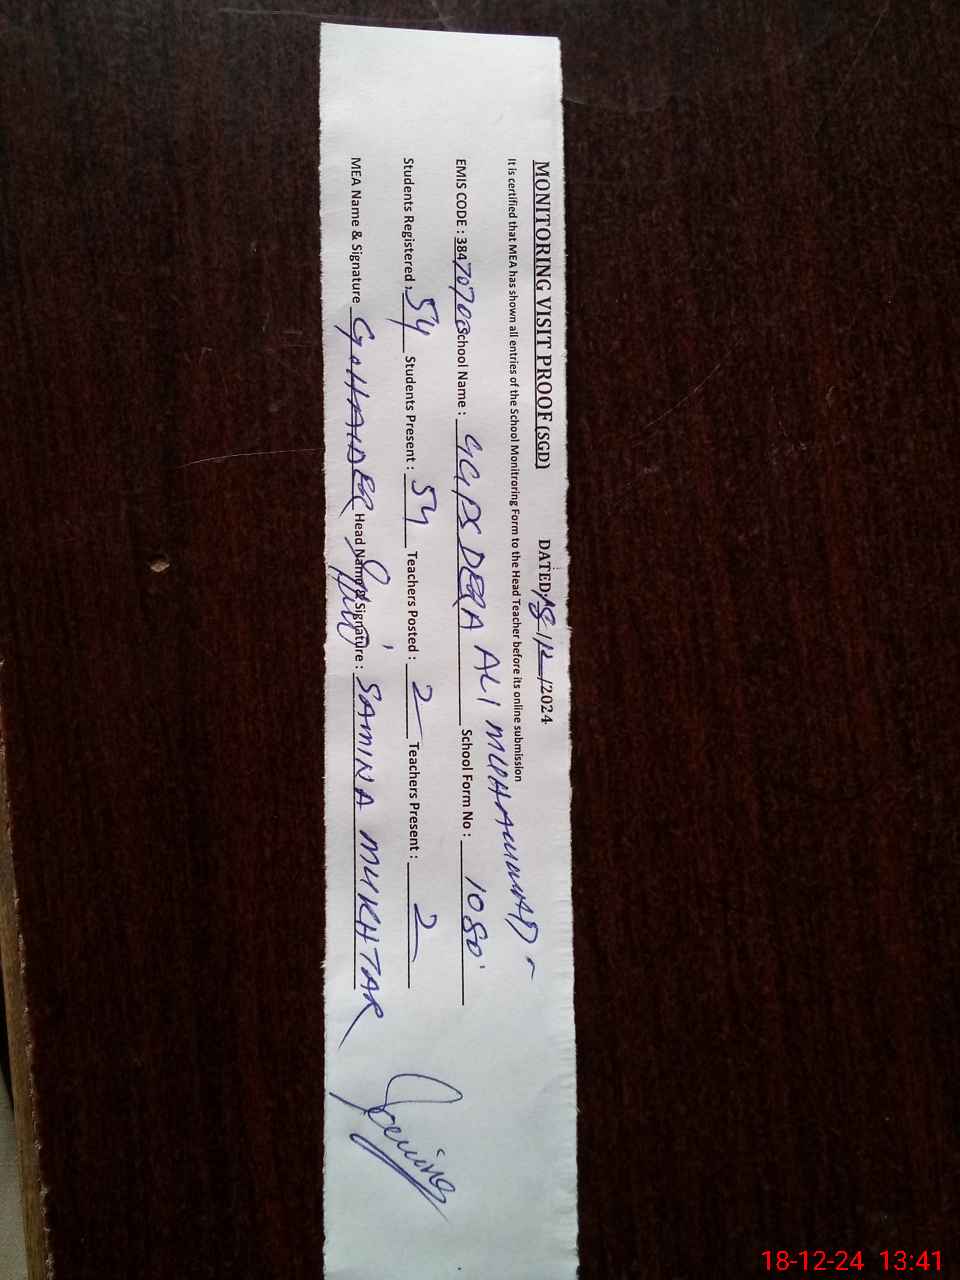 MONITORING VISIT PROOF (SGD) DATED 18/12/2024
It is certified that MEA has shown all entries of the School Monitroring Form to the Head Teacher before its online submission
EMIS CODE : 384 School Name : GGPS DERA ALI MUHAMMAD School Form No : 1080
Students Registered : 54 Students Present : 54 Teachers Posted : 2 Teachers Present : 2
MEA Name & Signature G. HAIDER Head Name & Signature : SAMINA MUKHTAR
18-12-24 13:41